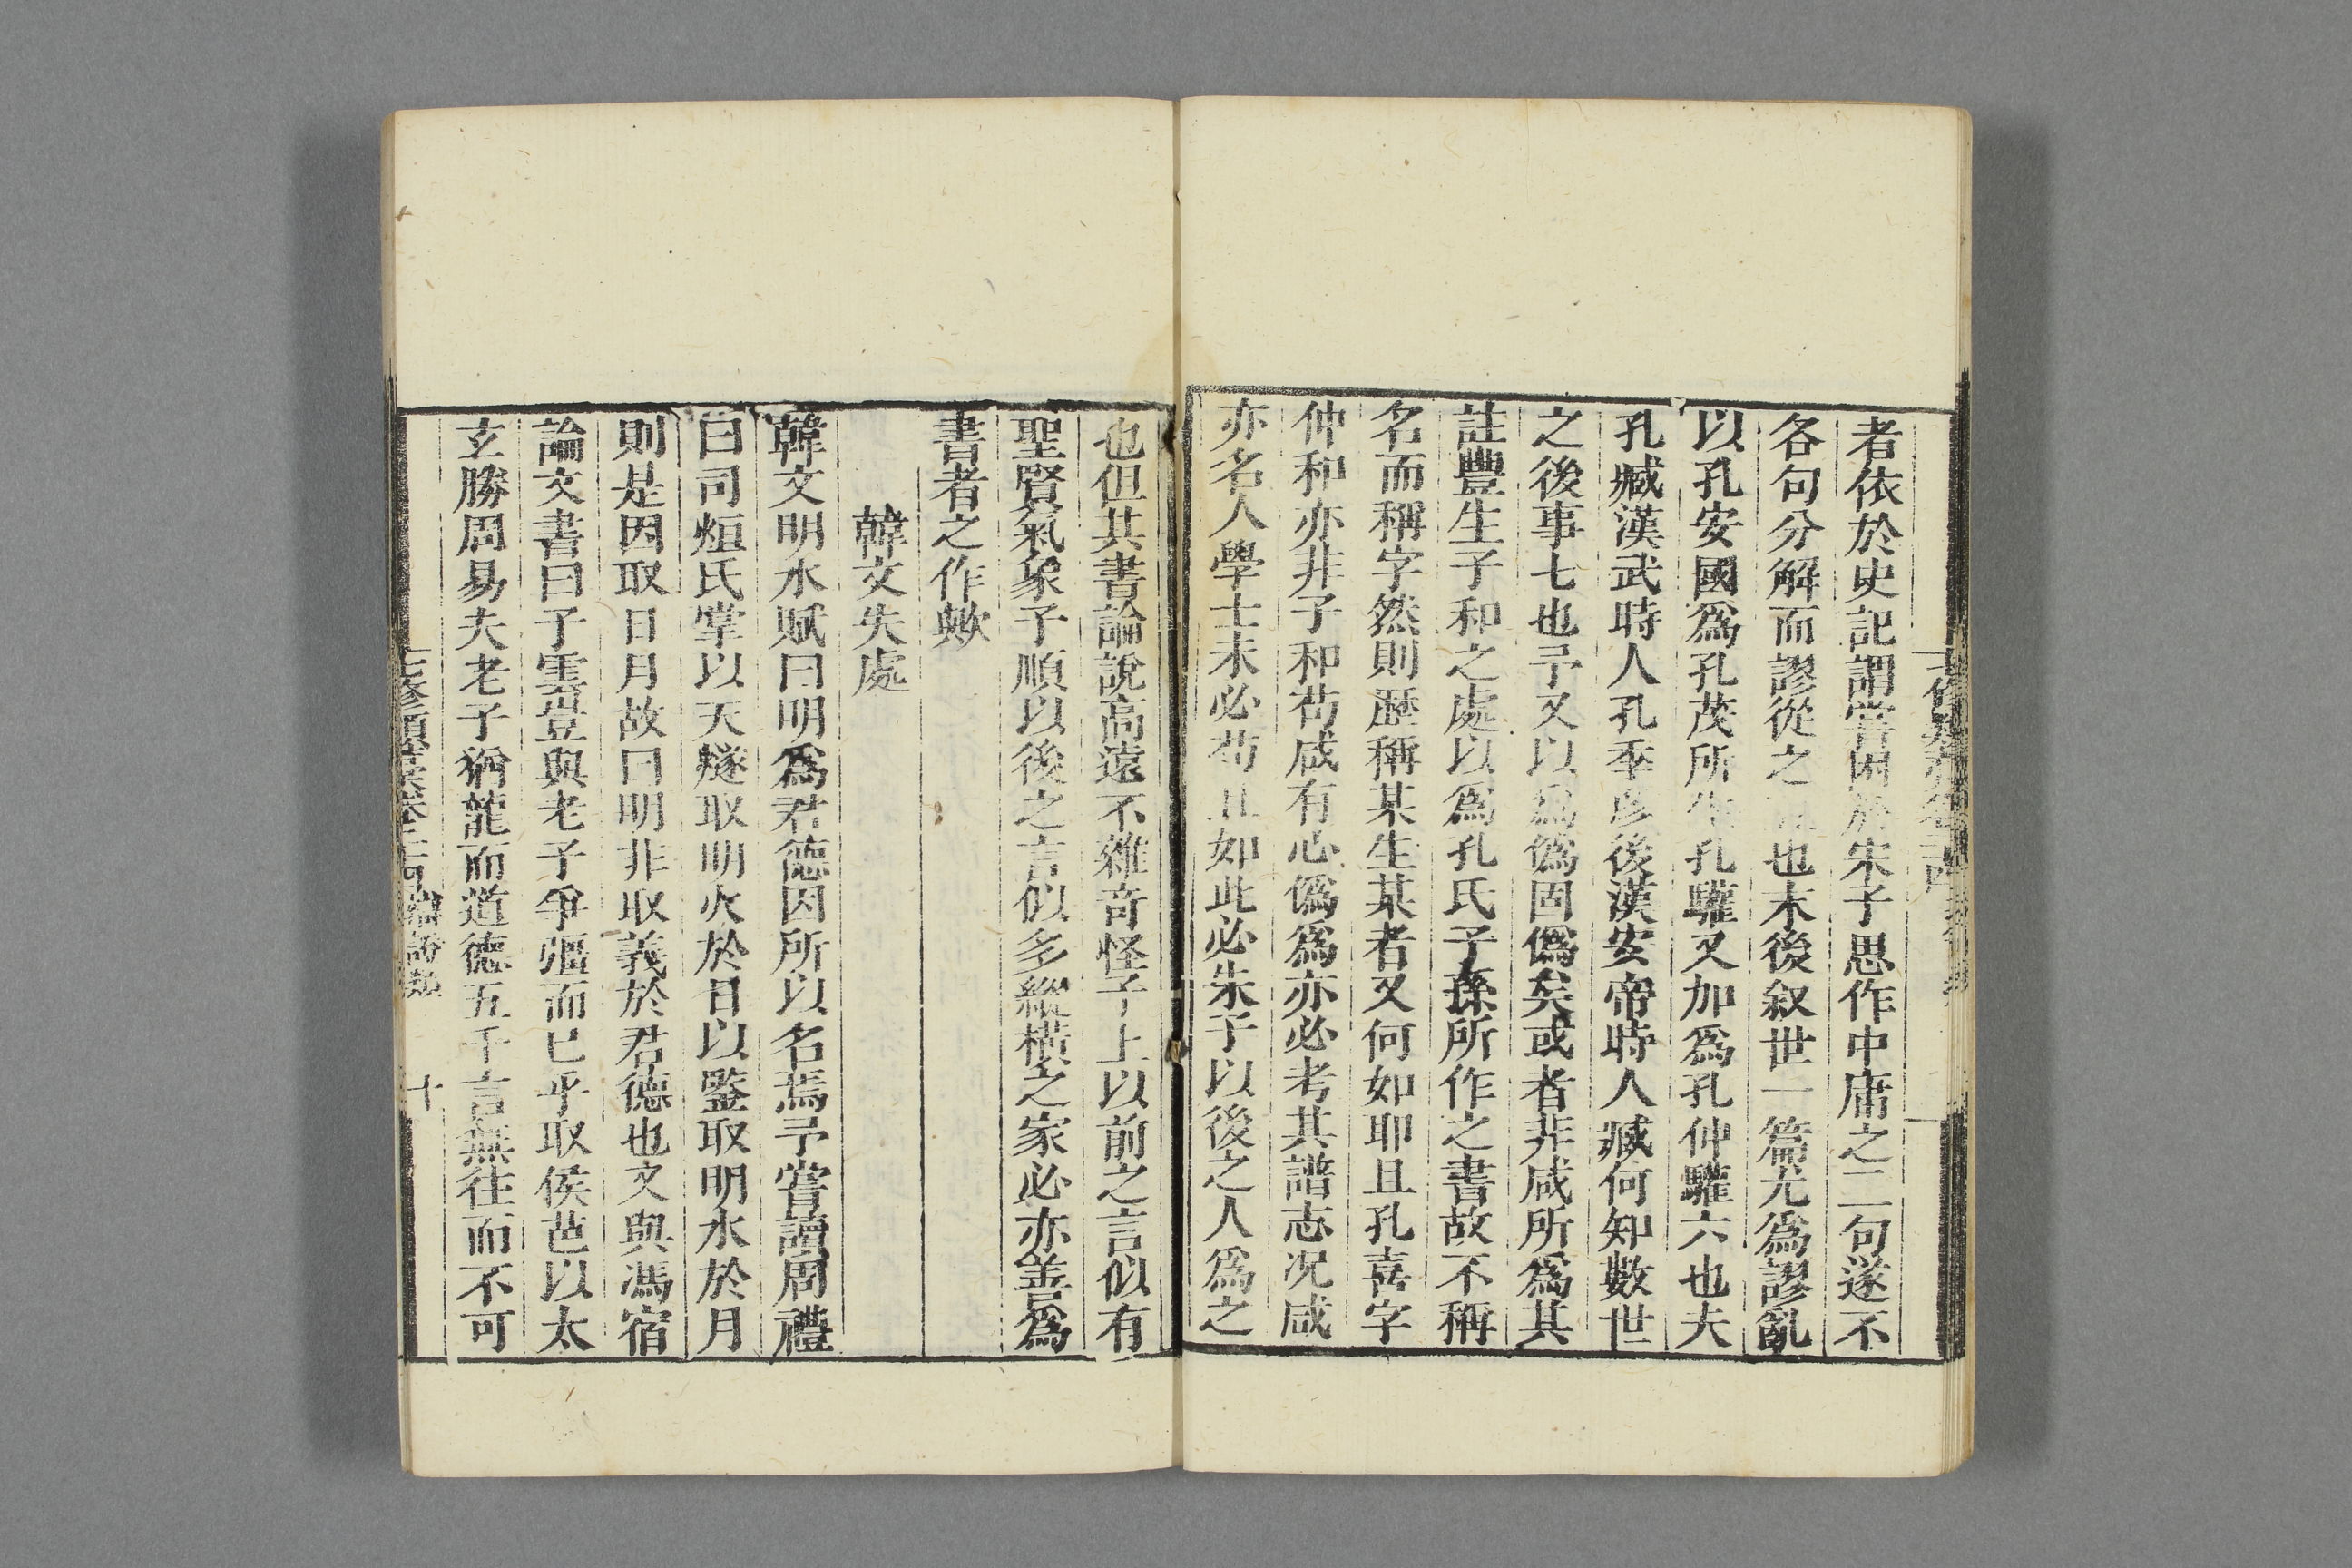 者依於史記謂嘗困於宋子思作中庸之二句遂不
各句分解而謬從之也末後叙世一篇尤爲謬亂
以孔安國爲孔茂所生孔驩又加爲孔仲驩六也夫
孔臧漢武時人孔季彦後漢安帝時人臧何知數世
之後事七也予又以爲僞固僞矣或者非咸所爲其
註豐生子和之處以爲孔氏子孫所作之書故不稱
名而稱字然則歴稱某生某者又何如耶且孔喜字
仲和亦非子和苟咸有心僞爲亦必考其譜志况咸
亦名人學士未必苟且如此必朱子以後之人爲之
也但其書論說高遠不雜奇怪子上以前之言似有
聖賢氣象子順以後之言似多縱横之家必亦善爲
書者之作歟
韓文失處
韓文明水賦曰明爲君德因所以名焉予嘗讀周禮
曰司烜氏掌以天燧取明火於日以鑒取明水於月
則是因取日月故曰明非取義於君德也文與馮宿
論文書曰子雲豈與老子爭彊而已乎取侯芭以太
玄勝周易夫老子猶龍而道德五千言無往而不可
七修類藁卷二十四 辯證類 十